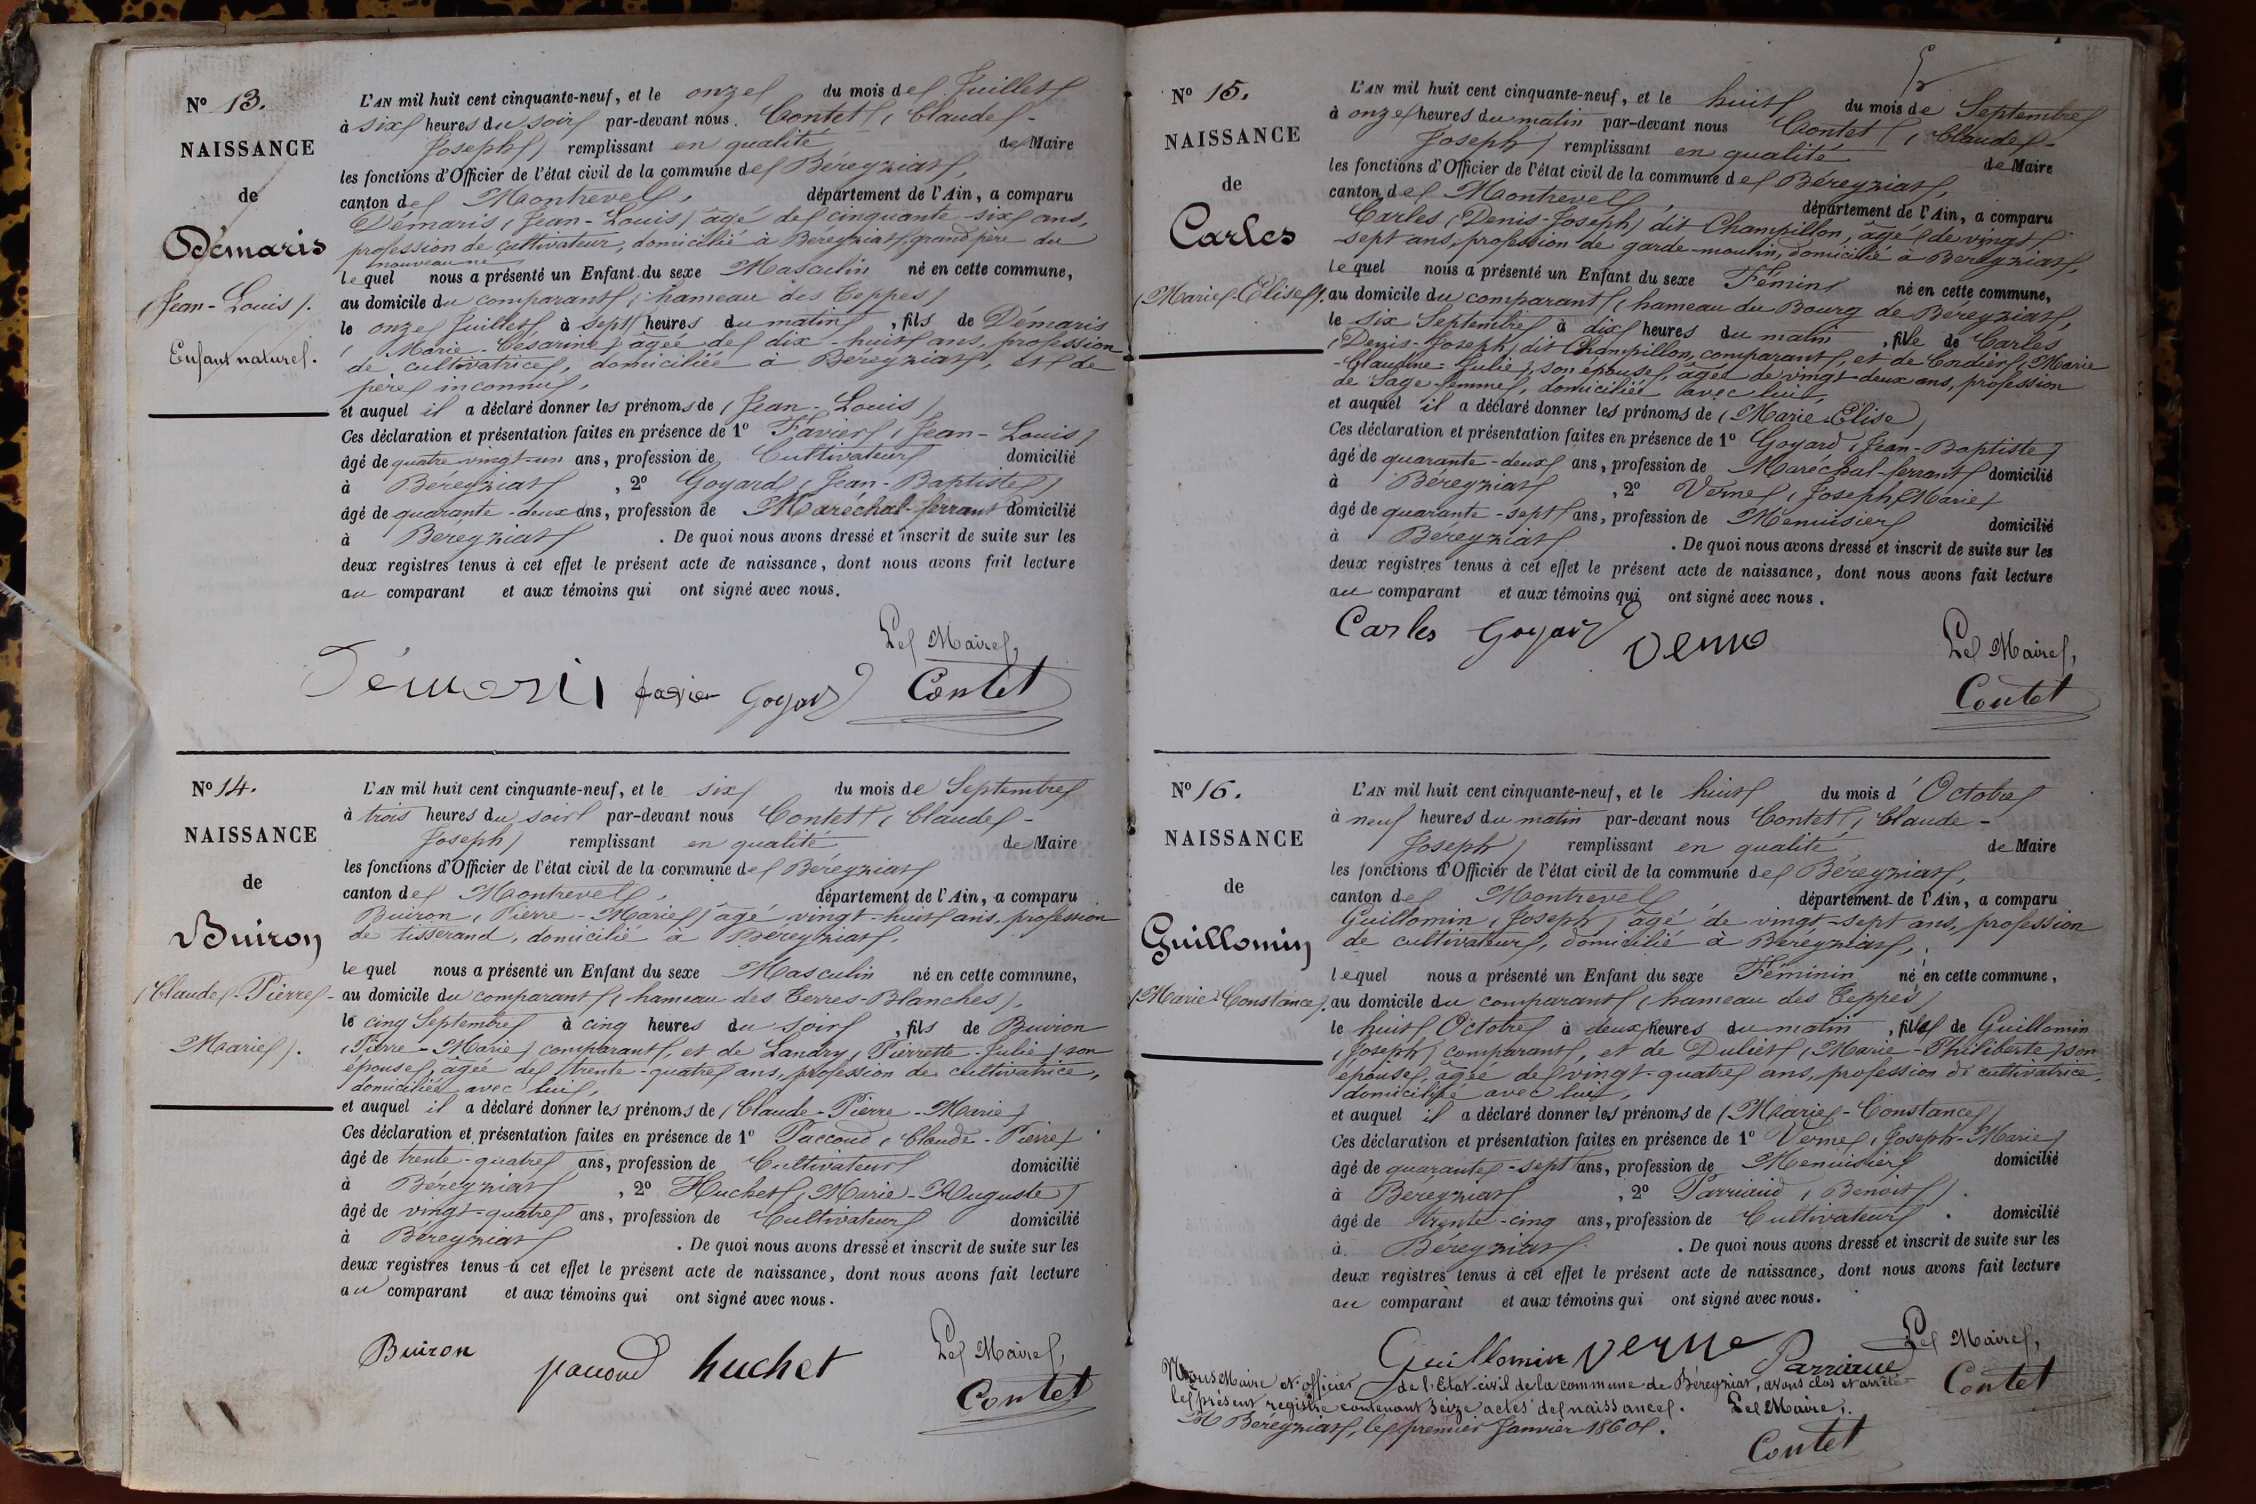 N° 13.
NAISSANCE
de
Démaris
(Jean-Louis).
Enfant naturel.
L'AN mil huit cent cinquante-neuf, et le onze du mois de Juillet
à six heures du soir par-devant nous Contet (Claude-
Joseph) remplissant en qualité de Maire
les fonctions d'Officier de l'état civil de la commune de Béreyziat,
canton de Montrevel, département de l'Ain, a comparu
Démaris (Jean-Louis) âgé de cinquante-six ans,
profession de cultivateur, domicilié à Béreyziat, grand père du
nouveau né
lequel nous a présenté un Enfant du sexe Masculin né en cette commune,
au domicile du comparant (hameau des Teppes)
le onze Juillet à sept heures du matin, fils de Démaris
(Marie-Césarine) âgée de dix-huit ans, profession
de cultivatrice, domiciliée à Béreyziat, et de
père inconnu,
et auquel il a déclaré donner les prénoms de (Jean-Louis)
Ces déclaration et présentation faites en présence de 1° Favier (Jean-Louis)
âgé de quatre vingt-un ans, profession de Cultivateur domicilié
à Béreyziat, 2° Goyard (Jean-Baptiste)
âgé de quarante-deux ans, profession de Maréchal-ferrant domicilié
à Béreyziat. De quoi nous avons dressé et inscrit de suite sur les
deux registres tenus à cet effet le présent acte de naissance, dont nous avons fait lecture
au comparant et aux témoins qui ont signé avec nous.
Le Maire,
Démaris favier Goyard Contet
N° 14.
NAISSANCE
de
Buiron
(Claude-Pierre-
Marie).
L'AN mil huit cent cinquante-neuf, et le six du mois de Septembre
à trois heures du soir par-devant nous Contet (Claude-
Joseph) remplissant en qualité de Maire
les fonctions d'Officier de l'état civil de la commune de Béreyziat
canton de Montrevel, département de l'Ain, a comparu
Buiron (Pierre-Marie) âgé vingt-huit ans, profession
de tisserand, domicilié à Béreyziat,
lequel nous a présenté un Enfant du sexe Masculin né en cette commune,
au domicile du comparant (hameau des Terres-Blanches),
le cinq Septembre à cinq heures du soir, fils de Buiron
(Pierre-Marie) comparant, et de Landry (Pierrette-Julie) son
épouse, âgée de trente-quatre ans, profession de cultivatrice,
domiciliée avec lui,
et auquel il a déclaré donner les prénoms de (Claude-Pierre-Marie)
Ces déclaration et présentation faites en présence de 1° Paccoud (Claude-Pierre)
âgé de trente-quatre ans, profession de Cultivateur domicilié
à Béreyziat, 2° Huchet (Marie-Auguste)
âgé de vingt-quatre ans, profession de Cultivateur domicilié
à Béreyziat. De quoi nous avons dressé et inscrit de suite sur les
deux registres tenus à cet effet le présent acte de naissance, dont nous avons fait lecture
au comparant et aux témoins qui ont signé avec nous.
Le Maire,
Buiron paccoud huchet Contet
N° 15.
NAISSANCE
de
Carles
(Marie-Elise).
L'AN mil huit cent cinquante-neuf, et le huit du mois de Septembre
à onze heures du matin par-devant nous Contet (Claude-
Joseph) remplissant en qualité de Maire
les fonctions d'Officier de l'état civil de la commune de Béreyziat,
canton de Montrevel, département de l'Ain, a comparu
Carles (Denis-Joseph) dit Champillon, âgé de vingt
-sept ans, profession de garde-moulin, domicilié à Béreyziat,
lequel nous a présenté un Enfant du sexe Féminin né en cette commune,
au domicile du comparant (hameau du Bourg de Béreyziat,
le six Septembre à dix heures du matin, fille de Carles
(Denis-Joseph) dit Champillon, comparant, et de Cordier (Marie
-Claudine-Julie), son épouse, âgée de vingt-deux ans, profession
de Sage-femme, domiciliée avec lui,
et auquel il a déclaré donner les prénoms de (Marie-Elise)
Ces déclaration et présentation faites en présence de 1° Goyard (Jean-Baptiste)
âgé de quarante-deux ans, profession de Maréchal-ferrant domicilié
à Béreyziat, 2° Verne (Joseph-Marie)
âgé de quarante-sept ans, profession de Menuisier domicilié
à Béreyziat. De quoi nous avons dressé et inscrit de suite sur les
deux registres tenus à cet effet le présent acte de naissance, dont nous avons fait lecture
au comparant et aux témoins qui ont signé avec nous.
Carles Goyard Verne Le Maire,
Contet
N° 16.
NAISSANCE
de
Guillomin
(Marie-Constance).
L'AN mil huit cent cinquante-neuf, et le huit du mois d'Octobre
à neuf heures du matin par-devant nous Contet (Claude-
Joseph) remplissant en qualité de Maire
les fonctions d'Officier de l'état civil de la commune de Béreyziat,
canton de Montrevel département de l'Ain, a comparu
Guillomin (Joseph) âgé de vingt-sept ans, profession
de cultivateur, domicilié à Béreyziat,
lequel nous a présenté un Enfant du sexe Féminin né en cette commune,
au domicile du comparant (hameau des Teppes)
le huit Octobre à deux heures du matin, fille de Guillomin
(Joseph) comparant, et de Duliet (Marie-Philiberte) son
épouse, âgée de vingt-quatre ans, profession de cultivatrice,
domiciliée avec lui,
et auquel il a déclaré donner les prénoms de (Marie-Constance)
Ces déclaration et présentation faites en présence de 1° Verne (Joseph-Marie)
âgé de quarante-sept ans, profession de Menuisier domicilié
à Béreyziat, 2° Parriaud (Benoit).
âgé de trente-cinq ans, profession de Cultivateur domicilié
à Béreyziat. De quoi nous avons dressé et inscrit de suite sur les
deux registres tenus à cet effet le présent acte de naissance, dont nous avons fait lecture
au comparant et aux témoins qui ont signé avec nous.
Guillomin Verne Parriaud Le Maire,
Contet
Nous Maire et officier de l'Etat-civil de la commune de Béreyziat, avons clos et arrêté
le présent registre contenant seize actes de naissance. Le Maire,
A Béreyziat, le premier Janvier 1860.
Contet